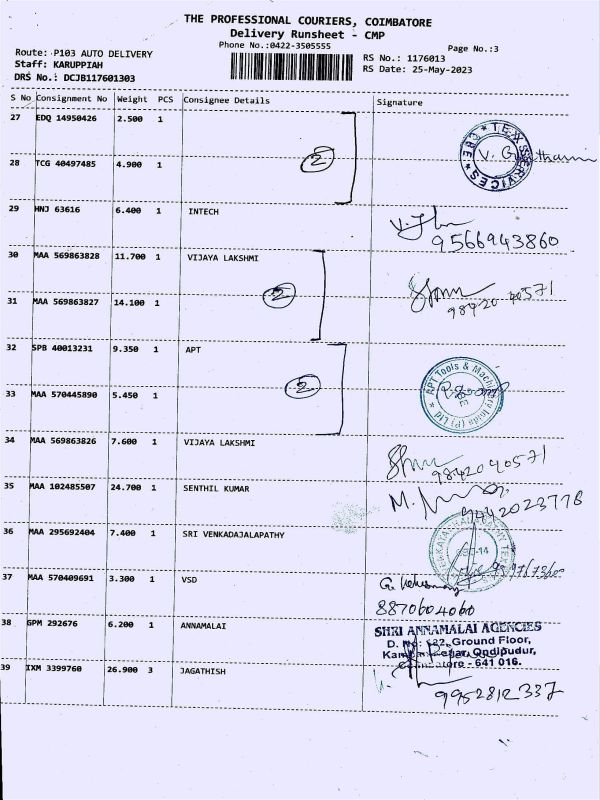 THE PROFESSIONAL COURIERS, COIMBATORE
Delivery Runsheet - CMP
Phone No.:0422-3505555
Page No.:3
Route: P103 AUTO DELIVERY
Staff: KARUPPIAH
DRS No.: DCJB117601303
RS No.: 1176013
RS Date: 25-May-2023
S No Consignment No Weight PCS Consignee Details Signature
27 EDQ 14950426 2.500 1
2
TEX SERVICES
28 TCG 40497485 4.900 1
29 HNJ 63616 6.400 1 INTECH
9566943860
30 MAA 569863828 11.700 1 VIJAYA LAKSHMI
2
98420 40571
31 MAA 569863827 14.100 1
32 SPB 40013231 9.350 1 APT
2
APT Tools & Machinery India (P) Ltd
33 MAA 570445890 5.450 1
34 MAA 569863826 7.600 1 VIJAYA LAKSHMI
9842040571
35 MAA 102485507 24.700 1 SENTHIL KUMAR
9442023778
36 MAA 295692404 7.400 1 SRI VENKADAJALAPATHY
37 MAA 570409691 3.300 1 VSD
8870604060
38 GPM 292676 6.200 1 ANNAMALAI
SHRI ANNAMALAI AGENCIES
Ground Floor,
Ondipudur,
641 016.
39 IXM 3399760 26.900 3 JAGATHISH
9952812337